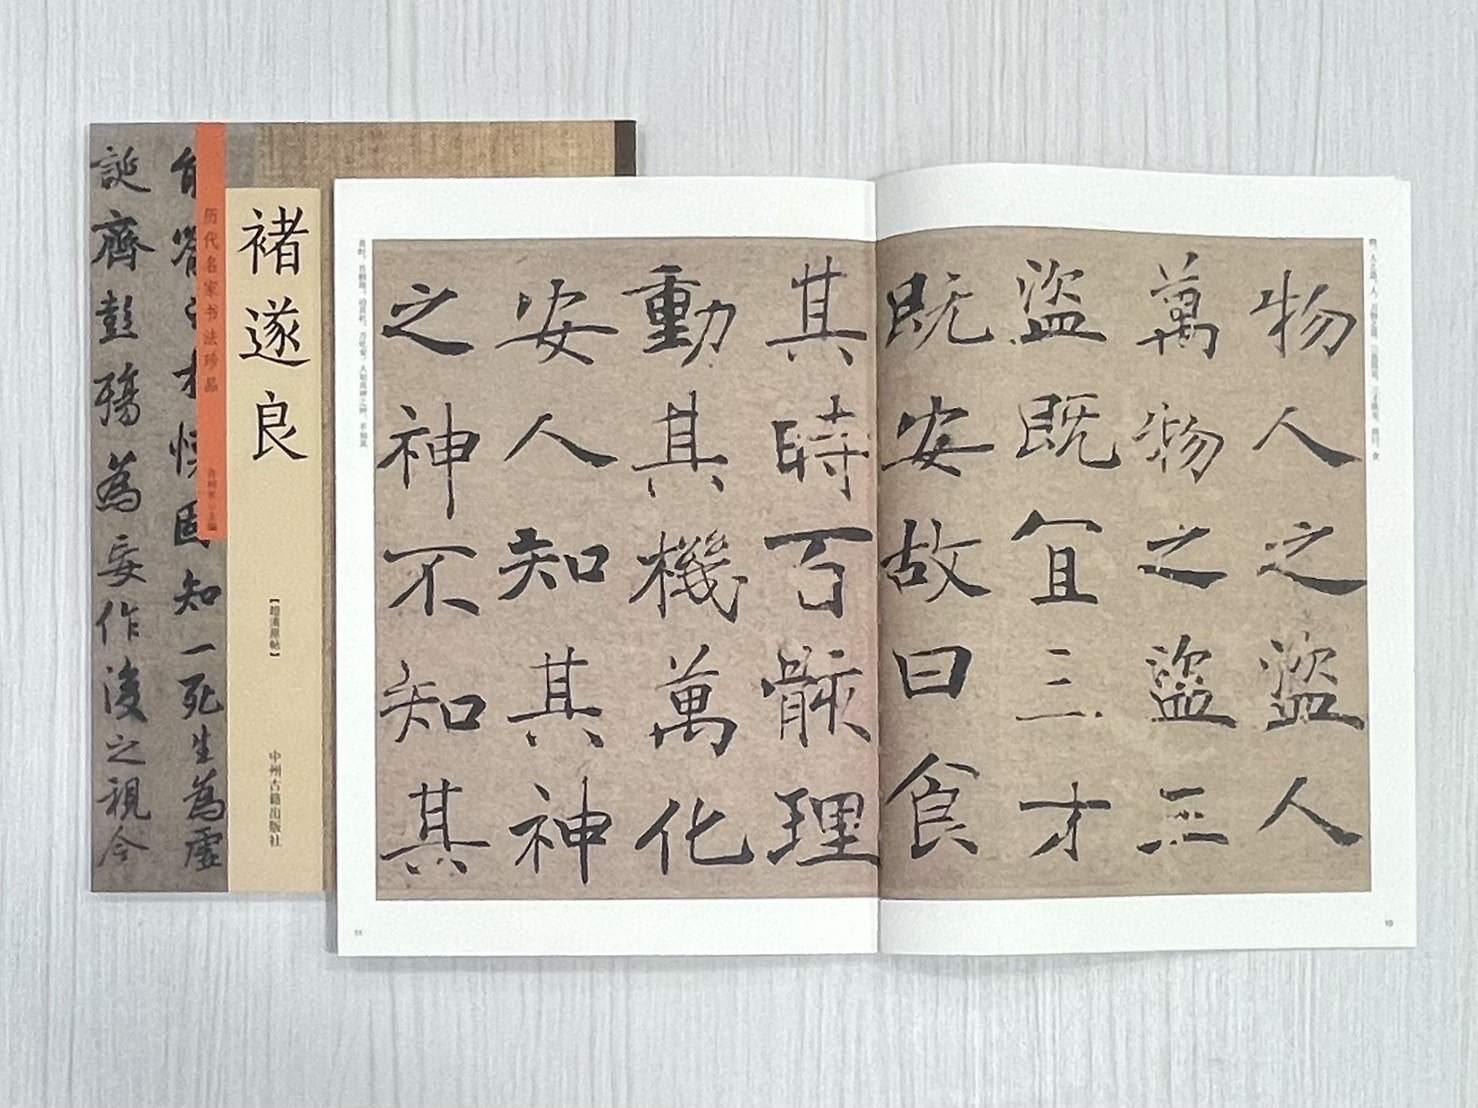 誕齊彭殤為妄作後之視今
固知一死生為虛
历代名家书法珍品
褚遂良
【超清原帖】
中州古籍出版社
物人之盜人
萬物之盜三
盜既宜三才
既安故曰食
其時百骸理
動其機萬化
安人知其神
之神不知其